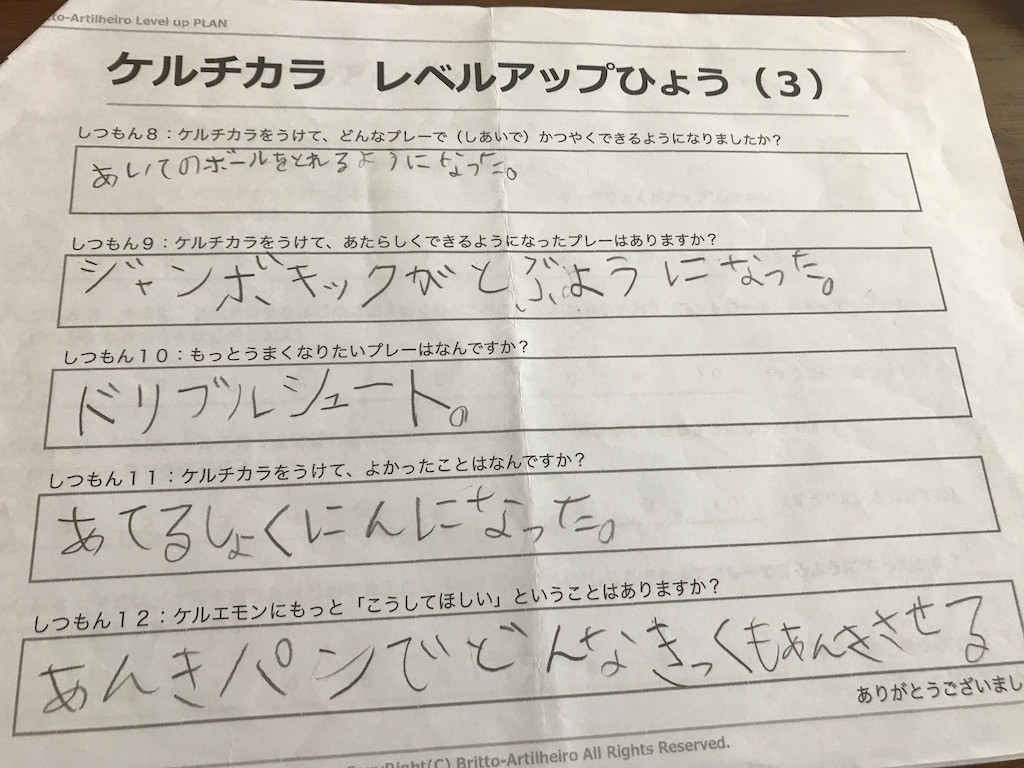 itto-Artilheiro Level up PLAN
ケルチカラ レベルアップひょう（３）
しつもん８：ケルチカラをうけて、どんなプレーで（しあいで）かつやくできるようになりましたか？
あいてのボールをとれるようになった。
しつもん９：ケルチカラをうけて、あたらしくできるようになったプレーはありますか？
ジャンボキックがとぶようになった。
しつもん１０：もっとうまくなりたいプレーはなんですか？
ドリブルシュート。
しつもん１１：ケルチカラをうけて、よかったことはなんですか？
あてるしょくにんになった。
しつもん１２：ケルエモンにもっと「こうしてほしい」ということはありますか？
あんきパンでどんなきっくもあんきさせる
ありがとうございまし
CopyRight(C) Britto-Artilheiro All Rights Reserved.